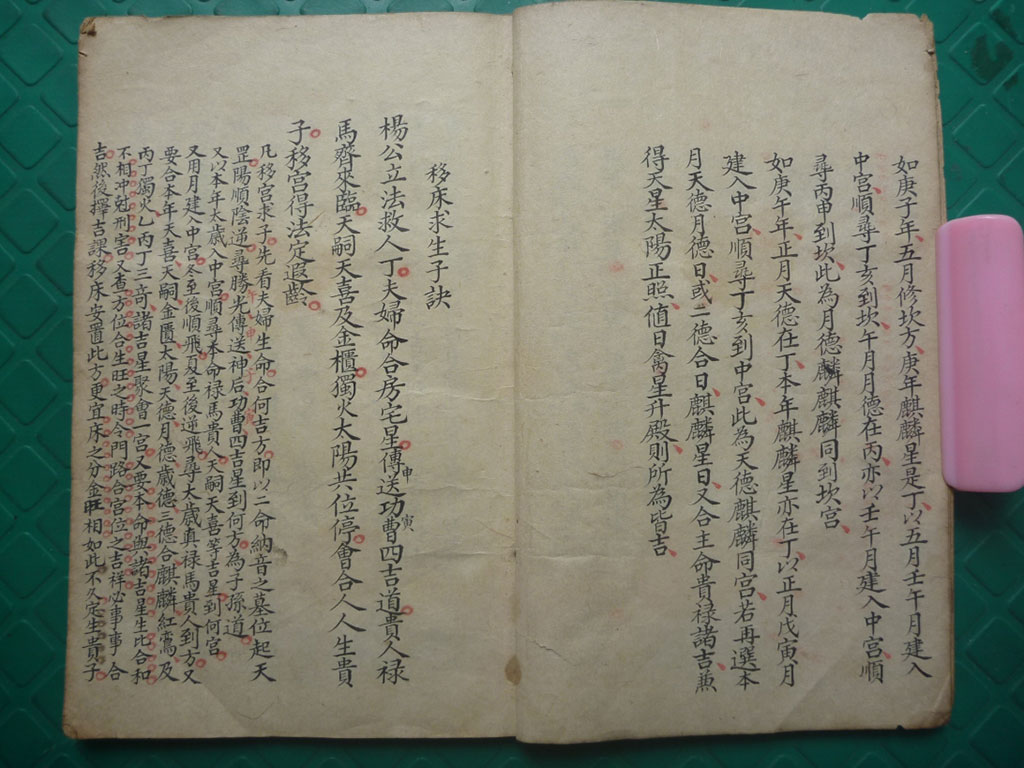 如庚子年五月修坎方庚年麒麟星是丁以五月壬午月建入
中宮順尋丁亥到坎午月月德在丙亦以壬午月建入中宮順
尋丙申到坎此為月德麟麒麟同到坎宮
如庚午年正月天德在丁本年麒麟星亦在丁以正月戊寅月
建入中宮順尋丁亥到中宮此為天德麒麟同宮若再選本
月天德月德日或二德合日麒麟星日又合主命貴祿諸吉兼
得天星太陽正照值日禽星升殿則所為皆吉
移床求生子訣
楊公立法救人丁夫婦命合房宅星傳送申功曹寅四吉道貴人祿
馬齊來臨天嗣天喜及金櫃獨火太陽共位停會合人人生貴
子移宮得法定遐齡
凡移宮求子先看夫婦生命合何吉方即以二命納音之墓位起天
罡陽順陰逆尋勝光傳送神后功曹四吉星到何方為子孫道
又以本年太歲入中宮順尋本命祿馬貴人天嗣天喜等吉星到何宮
又用月建入中宮冬至後順飛夏至後逆飛尋太歲真祿馬貴人到方又
要合本年天喜天嗣金匱太陽天德月德歲德三德合麒麟紅鸞及
丙丁獨火乙丙丁三奇諸吉星聚會一宮又要本命與諸吉星生比合和
不相冲尅刑害又查方位合生旺之時令門路合宮位之吉祥必事事合
吉然後擇吉課移床安置此方更宜床之分金旺相如此不久定生貴子